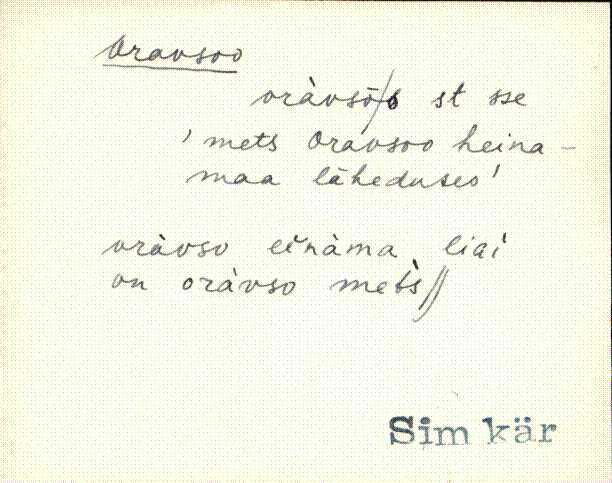 Oravsoo
oràvsō/o st sse
'mets Oravsoo heina-
maa läheduses'
oràvso eìnàma liai
on oràvso metś //
Sim kär